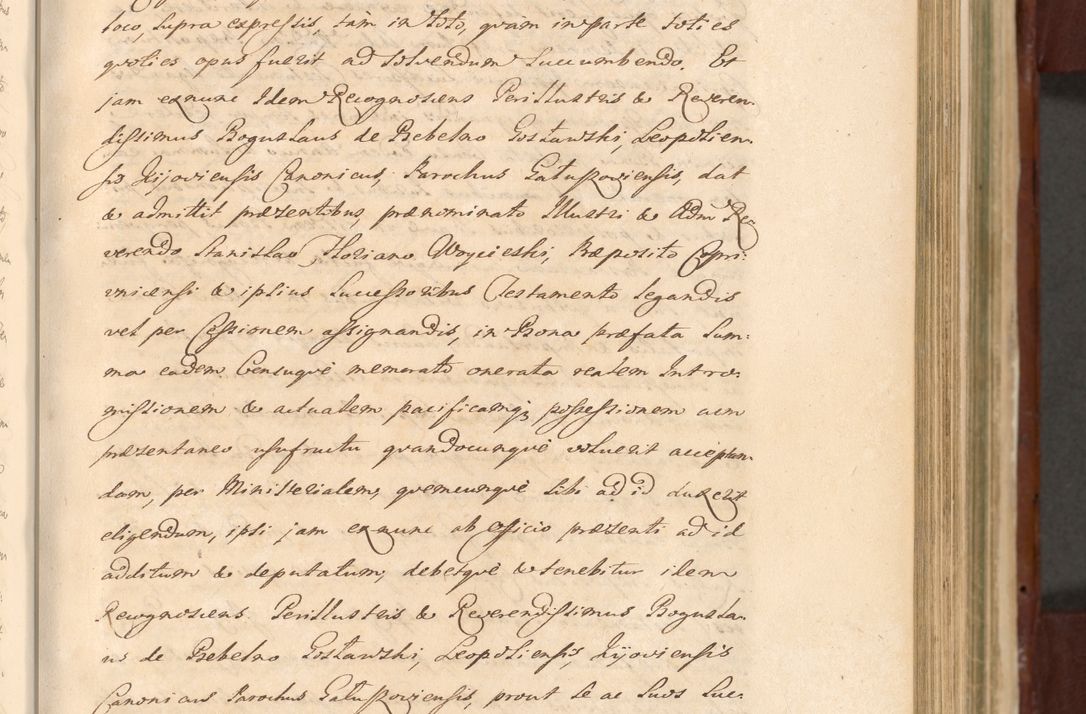 loco, supra expressis, tam in toto, quam in parte toties
quolies opus fuerit ad solvendum succumbendo. Et
jam exnunc Idem Recognoscens Perillustris & Reveren:
dissimus Boguslaus de Bebelno Gosławski, Leopolien:
sis Kijoviensis Canonicus, Parochus Gałuszoviensis, dat
& admittit præsentibus, prænominato Illustri & Adm Re:
verendo Stanislao Floriano Woycieski, Præposito Copri:
vnicensi & ipsius Successoribus Testamento legandis
vel per Cessionem assignandis, in Bona præfata Sum:
ma eadem Censuquè memorato onerata realem Intro:
missionem & actualem pacificamq; possessionem cum
præsentaneo usufructu quandocunquè voluerit accipien:
dam, per Ministerialem, quemcunquè sibi ad id duxerit
eligendum, ipsi jam exnunc ab officio præsenti ad id
additum & deputatum, debetquè & tenebitur idem
Recognoscens Perillustris & Reverendissimus Bogusla:
us de Bebelno Gosławski, Leopoliensis, Kijoviensis
Canonicus Parochus Gałuszoviensis, prout se ac suos Suc: